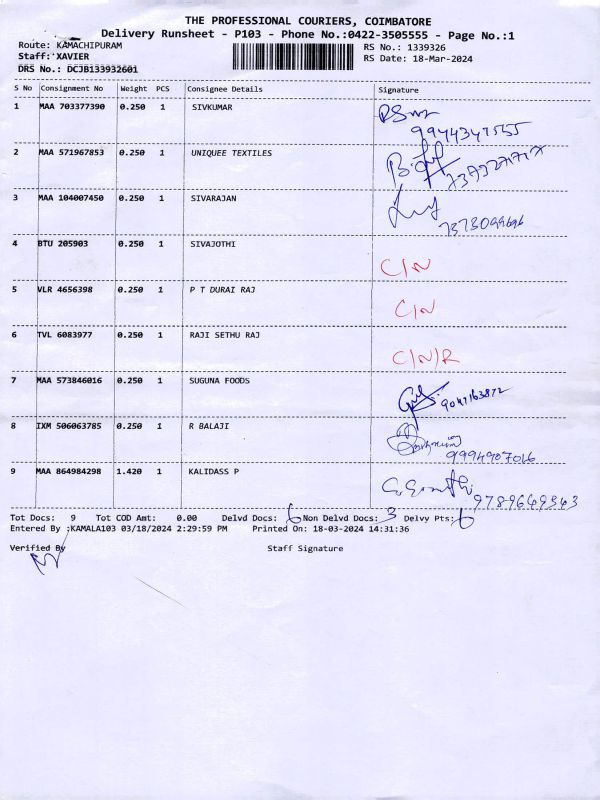 THE PROFESSIONAL COURIERS, COIMBATORE
Delivery Runsheet - P103 - Phone No.:0422-3505555 - Page No.:1
Route: KAMACHIPURAM RS No.: 1339326
Staff: XAVIER RS Date: 18-Mar-2024
DRS No.: DCJB133932601
S No Consignment No Weight PCS Consignee Details Signature
1 MAA 703377390 0.250 1 SIVKUMAR
2 MAA 571967853 0.250 1 UNIQUEE TEXTILES
3 MAA 104007450 0.250 1 SIVARAJAN
7373099696
4 BTU 205903 0.250 1 SIVAJOTHI
C/N
5 VLR 4656398 0.250 1 P T DURAI RAJ
C/N
6 TVL 6083977 0.250 1 RAJI SETHU RAJ
C/N/R
7 MAA 573846016 0.250 1 SUGUNA FOODS
9047163872
8 IXM 506063785 0.250 1 R BALAJI
9994907066
9 MAA 864984298 1.420 1 KALIDASS P
9789649343
Tot Docs: 9 Tot COD Amt: 0.00 Delvd Docs: 6 Non Delvd Docs: 3 Delvy Pts: 6
Entered By :KAMALA103 03/18/2024 2:29:59 PM Printed On: 18-03-2024 14:31:36
Verified By Staff Signature